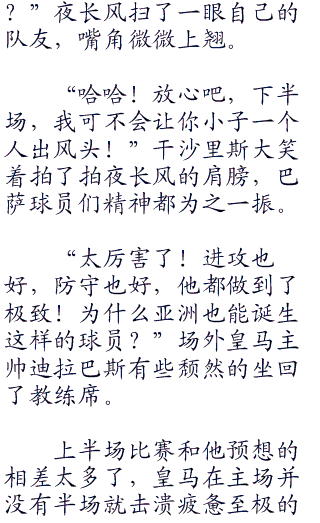 ？”夜长风扫了一眼自己的
队友，嘴角微微上翘。
“哈哈！放心吧，下半
场，我可不会让你小子一个
人出风头！”干沙里斯大笑
着拍了拍夜长风的肩膀，巴
萨球员们精神都为之一振。
“太厉害了！进攻也
好，防守也好，他都做到了
极致！为什么亚洲也能诞生
这样的球员？”场外皇马主
帅迪拉巴斯有些颓然的坐回
了教练席。
上半场比赛和他预想的
相差太多了，皇马在主场并
没有半场就击溃疲惫至极的